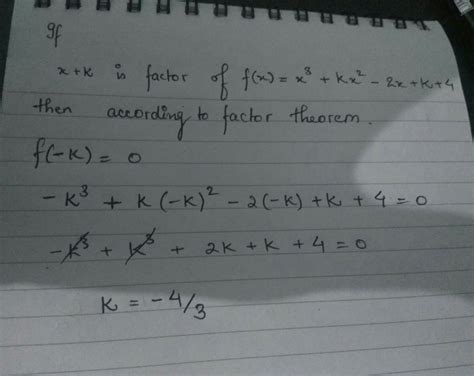 If
x+k is factor of f(x) = x³ + kx² - 2x + k + 4
then according to factor theorem.
f(-k) = 0
-k³ + k(-k)² - 2(-k) + k + 4 = 0
-k³ + k³ + 2k + k + 4 = 0
k = -4/3